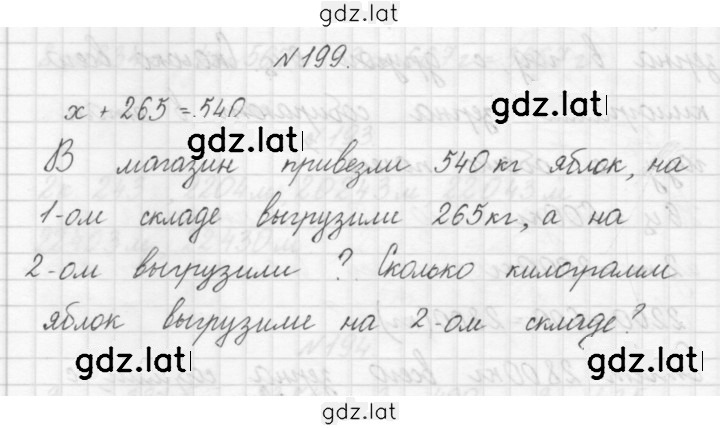 gdz.lat
N199.
x + 265 = 540
gdz.lat gdz.lat
В магазин привезли 540 кг яблок, на
1-ом складе выгрузили 265 кг, а на
2-ом выгрузили ? Сколько килограмм
яблок выгрузили на 2-ом складе?
gdz.lat gdz.lat
gdz.lat